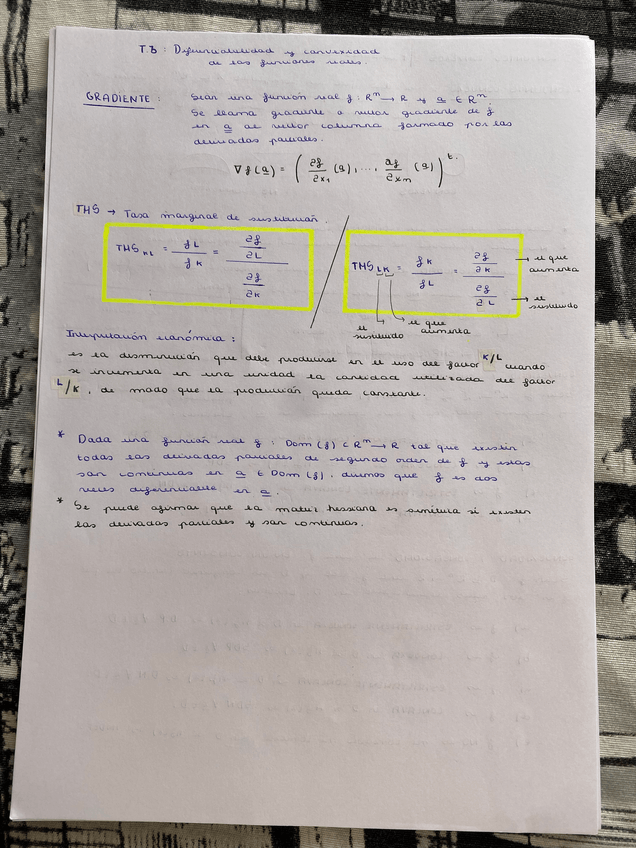 T8: Diferenciabilidad y convexidad
de las funciones reales.
GRADIENTE: Sean una función real f: Rⁿ → R y a ∈ Rⁿ
Se llama gradiente o vector gradiente de f
en a al vector columna formado por las
derivadas parciales.
∇f(a) = (∂f/∂x₁ (a), ..., ∂f/∂xₙ (a))ᵗ.
TMS → Tasa marginal de sustitución.
TMS KL = fL/fK = ∂f/∂L / ∂f/∂K
TMS LK = fK/fL = ∂f/∂K / ∂f/∂L
→ el que aumenta
→ el sustituido
el sustituido
el que aumenta
Interpretación económica:
es la disminución que debe producirse en el uso del factor K/L cuando
se incrementa en una unidad la cantidad utilizada del factor
L/K, de modo que la producción queda constante.
* Dada una función real f: Dom(f) ⊂ Rⁿ → R tal que existen
todas las derivadas parciales de segundo orden de f y estas
son continuas en a ∈ Dom(f), diremos que f es dos
veces diferenciable en a.
* Se puede afirmar que la matriz hessiana es simétrica si existen
las derivadas parciales y son continuas.